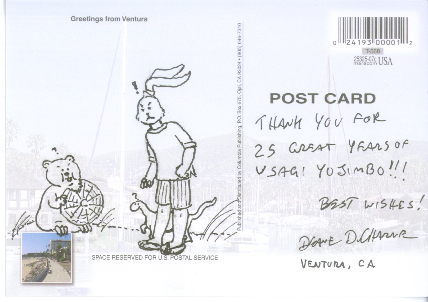 Greetings from Ventura
0 24193 00001 2
USA
POST CARD
THANK YOU FOR
25 GREAT YEARS OF
USAGI YOJIMBO!!!
BEST WISHES!
VENTURA, CA
SPACE RESERVED FOR U.S. POSTAL SERVICE
!
?
?